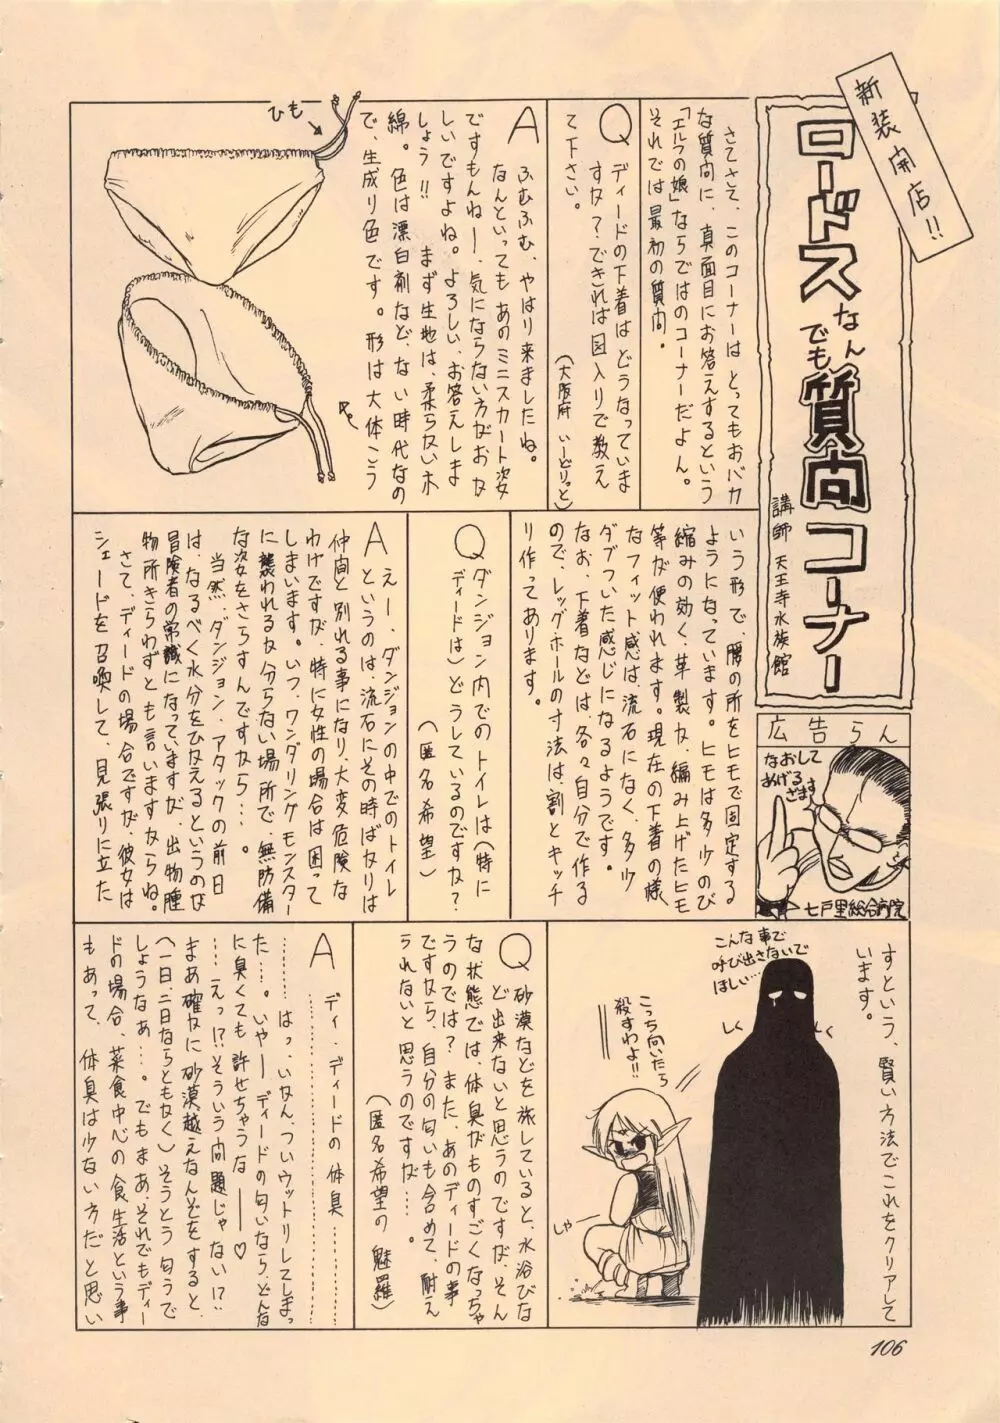 新装開店!!
ロードスなんでも質向コーナー
講師 天王寺水族館
さてさそ、このコーナーは とってもおバカ
な質向に、真面目にお答えするという
「エルフの娘」ならではのコーナーだよん。
それでは最初の質向。
Q ディードの下着は どうなっていま
すか?できれば図入りで教え
て下さい。
(大阪府 いーどりっと)
A ふむふむ、やはり来ましたね。
なんといっても あのミニスカート姿
ですもんねー、気にならない方がおか
しいですよね。よろしい、お答えしま
しょう!! まず生地は、柔らかい木
綿。色は漂白剤など、ない時代なの
で、生成り色です。形は大体こう
ひも
いう形で、腰の所をヒモで固定する
ようになっています。ヒモは多少のび
縮みの効く、革製か、編み上げたヒモ
等が使われます。現在の下着の様
なフィット感は、流石になく、多少
ダブついた感じになるようです。
なお、下着などは各々自分で作る
ので、レッグホールの寸法は、割とキッチ
リ作ってあります。
Q ダンジョン内でのトイレは(特に
ディードは)どうしているのですか?
(匿名希望)
A えー、ダンジョンの中でのトイレ
というのは、流石にその時ばかりは
仲間と別れる事になり、大変危険な
わけですが、特に女性の場合は困って
しまいます。いつ、ワンダリングモンスター
に襲われるか分らない場所で、無防備
な姿をさらすんですから…。
当然、ダンジョン・アタックの前日
は、なるべく水分をひかえるというのが
冒険者の常識になっていますが、出物腫
物所きらわずとも言いますからね。
さて、ディードの場合ですが、彼女は
シェードを召喚して、見張りに立た
広告らん
なおして
あげる
ざます
七戸里総合病院
すという、賢い方法でこれをクリアして
います。
こんな事で
呼び出さないで
ほしい…
しく
しく
こっち向いたら
殺すわよ!!
しゃー
Q 砂漠などを旅していると、水浴びな
ど出来ないと思うのですが、そん
な状態では、体臭がものすごくなっちゃ
うのでは?また、あのディードの事
ですから、自分の匂いも含めて、耐え
られないと思うのですが…。
(匿名希望の 魅羅)
A ディ・ディードの体臭………
………………………………
……はっ、いかん、ついウットリしてしまっ
た…。いやーディードの匂いなら、どんな
に臭くても許せちゃうなー♡
…えっ!?そういう向題じゃない!?
まあ確かに砂漠越えなんぞをすると、
(一日、二日ならともかく)そうとう匂うで
しょうなぁ…。でもまあ、それでもディー
ドの場合、菜食中心の食生活という事
もあって、体臭は少ない方だと思い
106